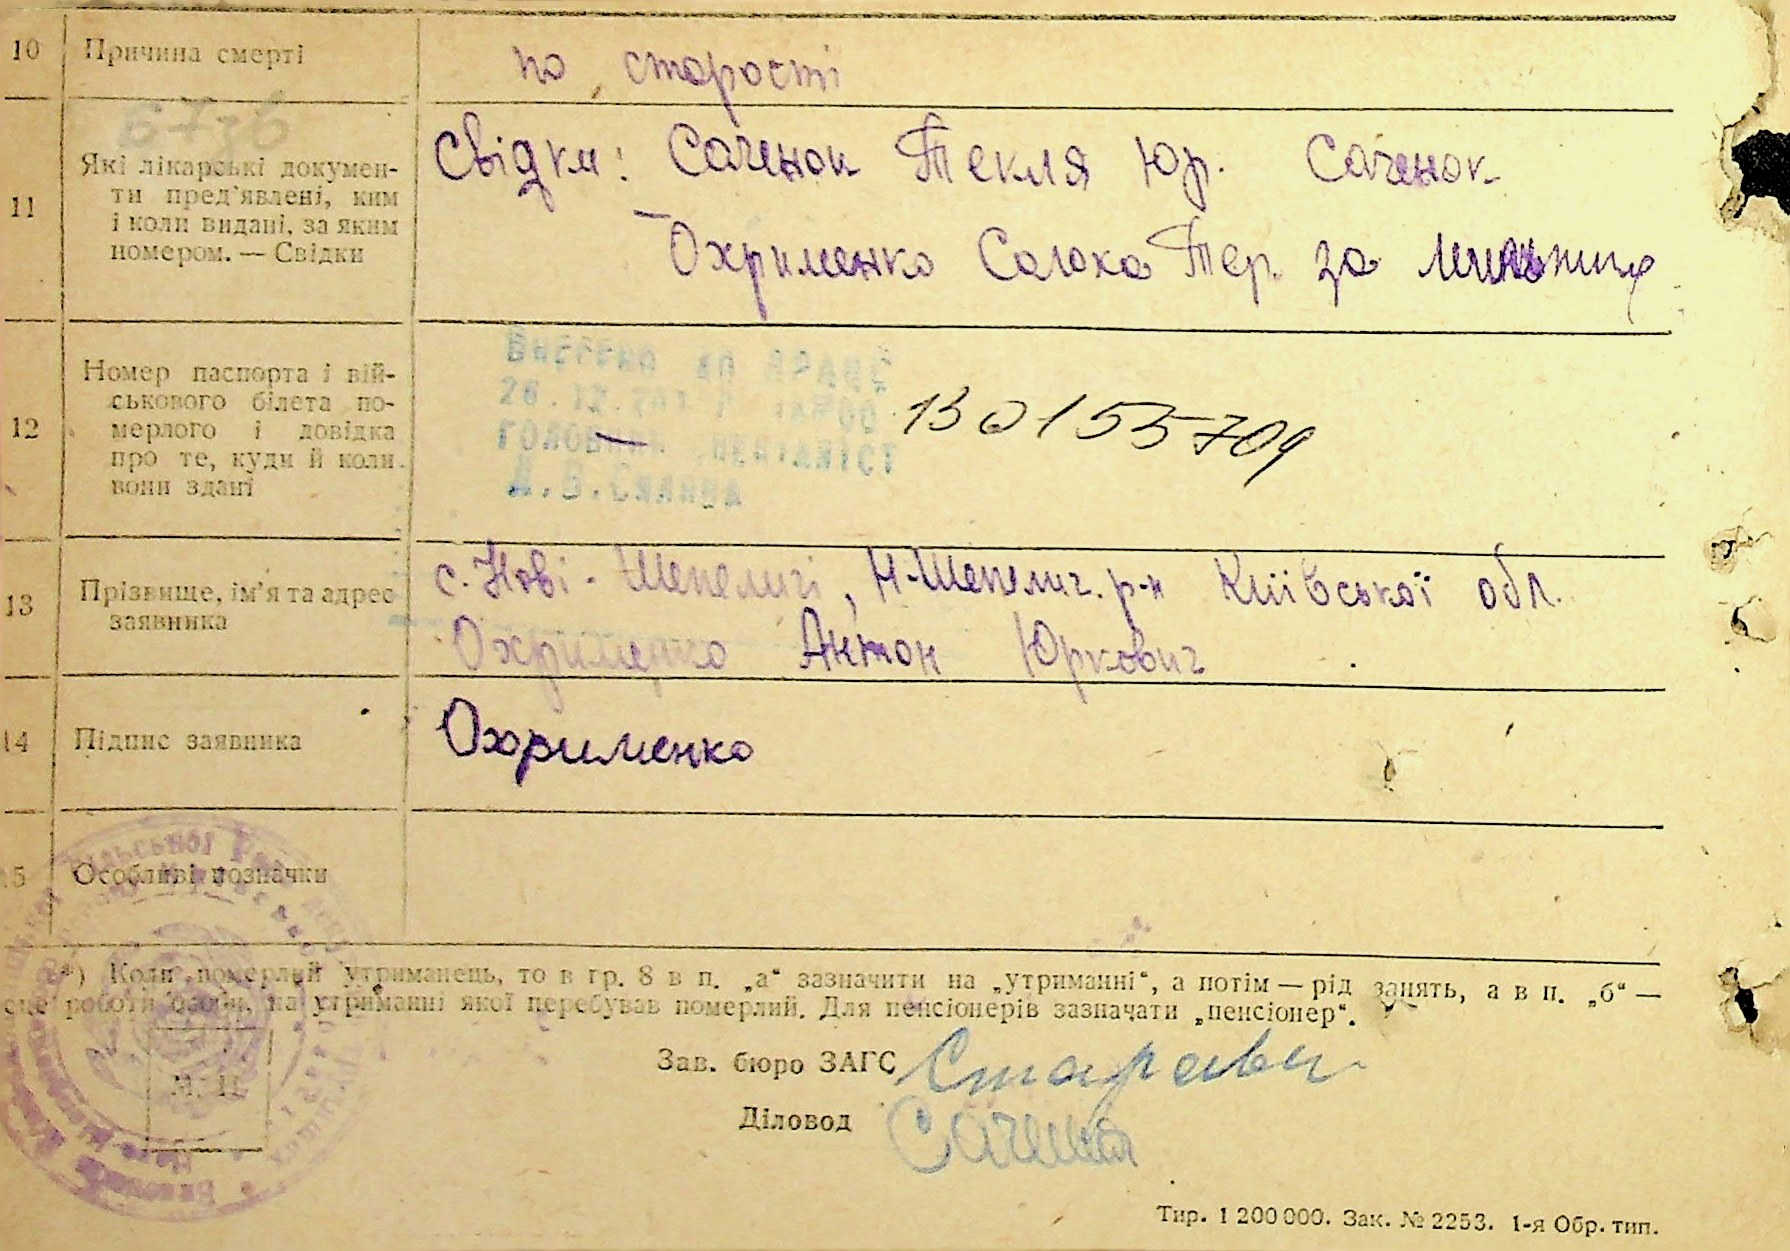 10 Причина смерті
по старості
11 Які лікарські докумен-
ти пред'явлені, ким
і коли видані, за яким
номером. — Свідки
Свідки: Саченок Текля Юр. Саченок
Охрименко Солоха Тер. за
12 Номер паспорта і вій-
ськового білета по-
мерлого і довідка
про те, куди й коли
вони здані
Внесено до ДРАЦС
26.12.201
ГОЛОВНИЙ СПЕЦІАЛІСТ
130155709
13 Прізвище, ім'я та адрес
заявника
с. Нові-Шепеличі, Н-Шепелич. р-н Київської обл.
Охрименко Антон Юркович
14 Підпис заявника
Охрименко
15 Особливі позначки
*) Коли померлий утриманець, то в гр. 8 в п. „а“ зазначити на „утриманні“, а потім — рід занять, а в п. „б“ —
роботи особи, на утриманні якої перебував померлий. Для пенсіонерів зазначати „пенсіонер“.
Зав. бюро ЗАГС
М. П.
Діловод
Тир. 1 200 000. Зак. № 2253. 1-я Обр. тип.